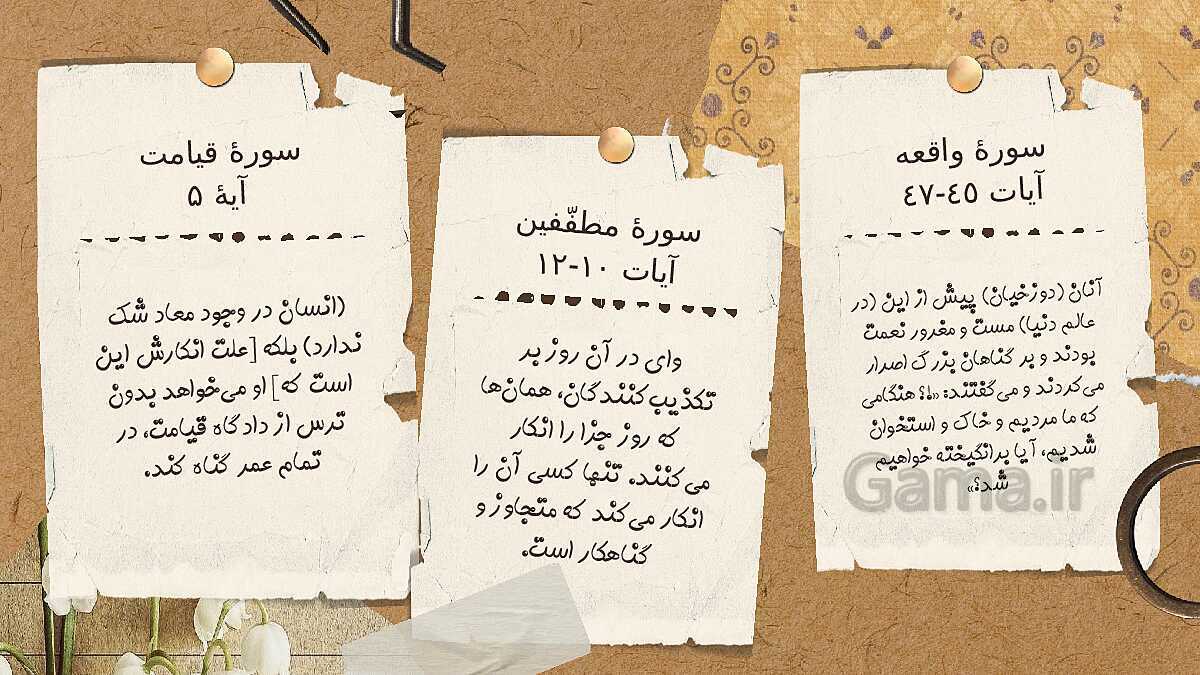 سورهٔ واقعه
آیات ٤٥-٤٧
آنان (دوزخیان) پیش از این (در
عالم دنیا) مست و مغرور نعمت
بودند و بر گناهان بزرگ اصرار
می‌کردند و می‌گفتند: «!؟ هنگامی
که ما مردیم و خاک و استخوان
شدیم، آیا برانگیخته خواهیم
شد؟»
Gama.ir
سورهٔ مطفّفین
آیات ١٠-١٢
وای در آن روز بر
تکذیب‌کنندگان، همان‌ها
که روز جزا را انکار
می‌کنند. تنها کسی آن را
انکار می‌کند که متجاوز و
گناهکار است.
سورهٔ قیامت
آیهٔ ۵
(انسان در وجود معاد شک
ندارد) بلکه [علت انکارش این
است که] او می‌خواهد بدون
ترس از دادگاه قیامت، در
تمام عمر گناه کند.